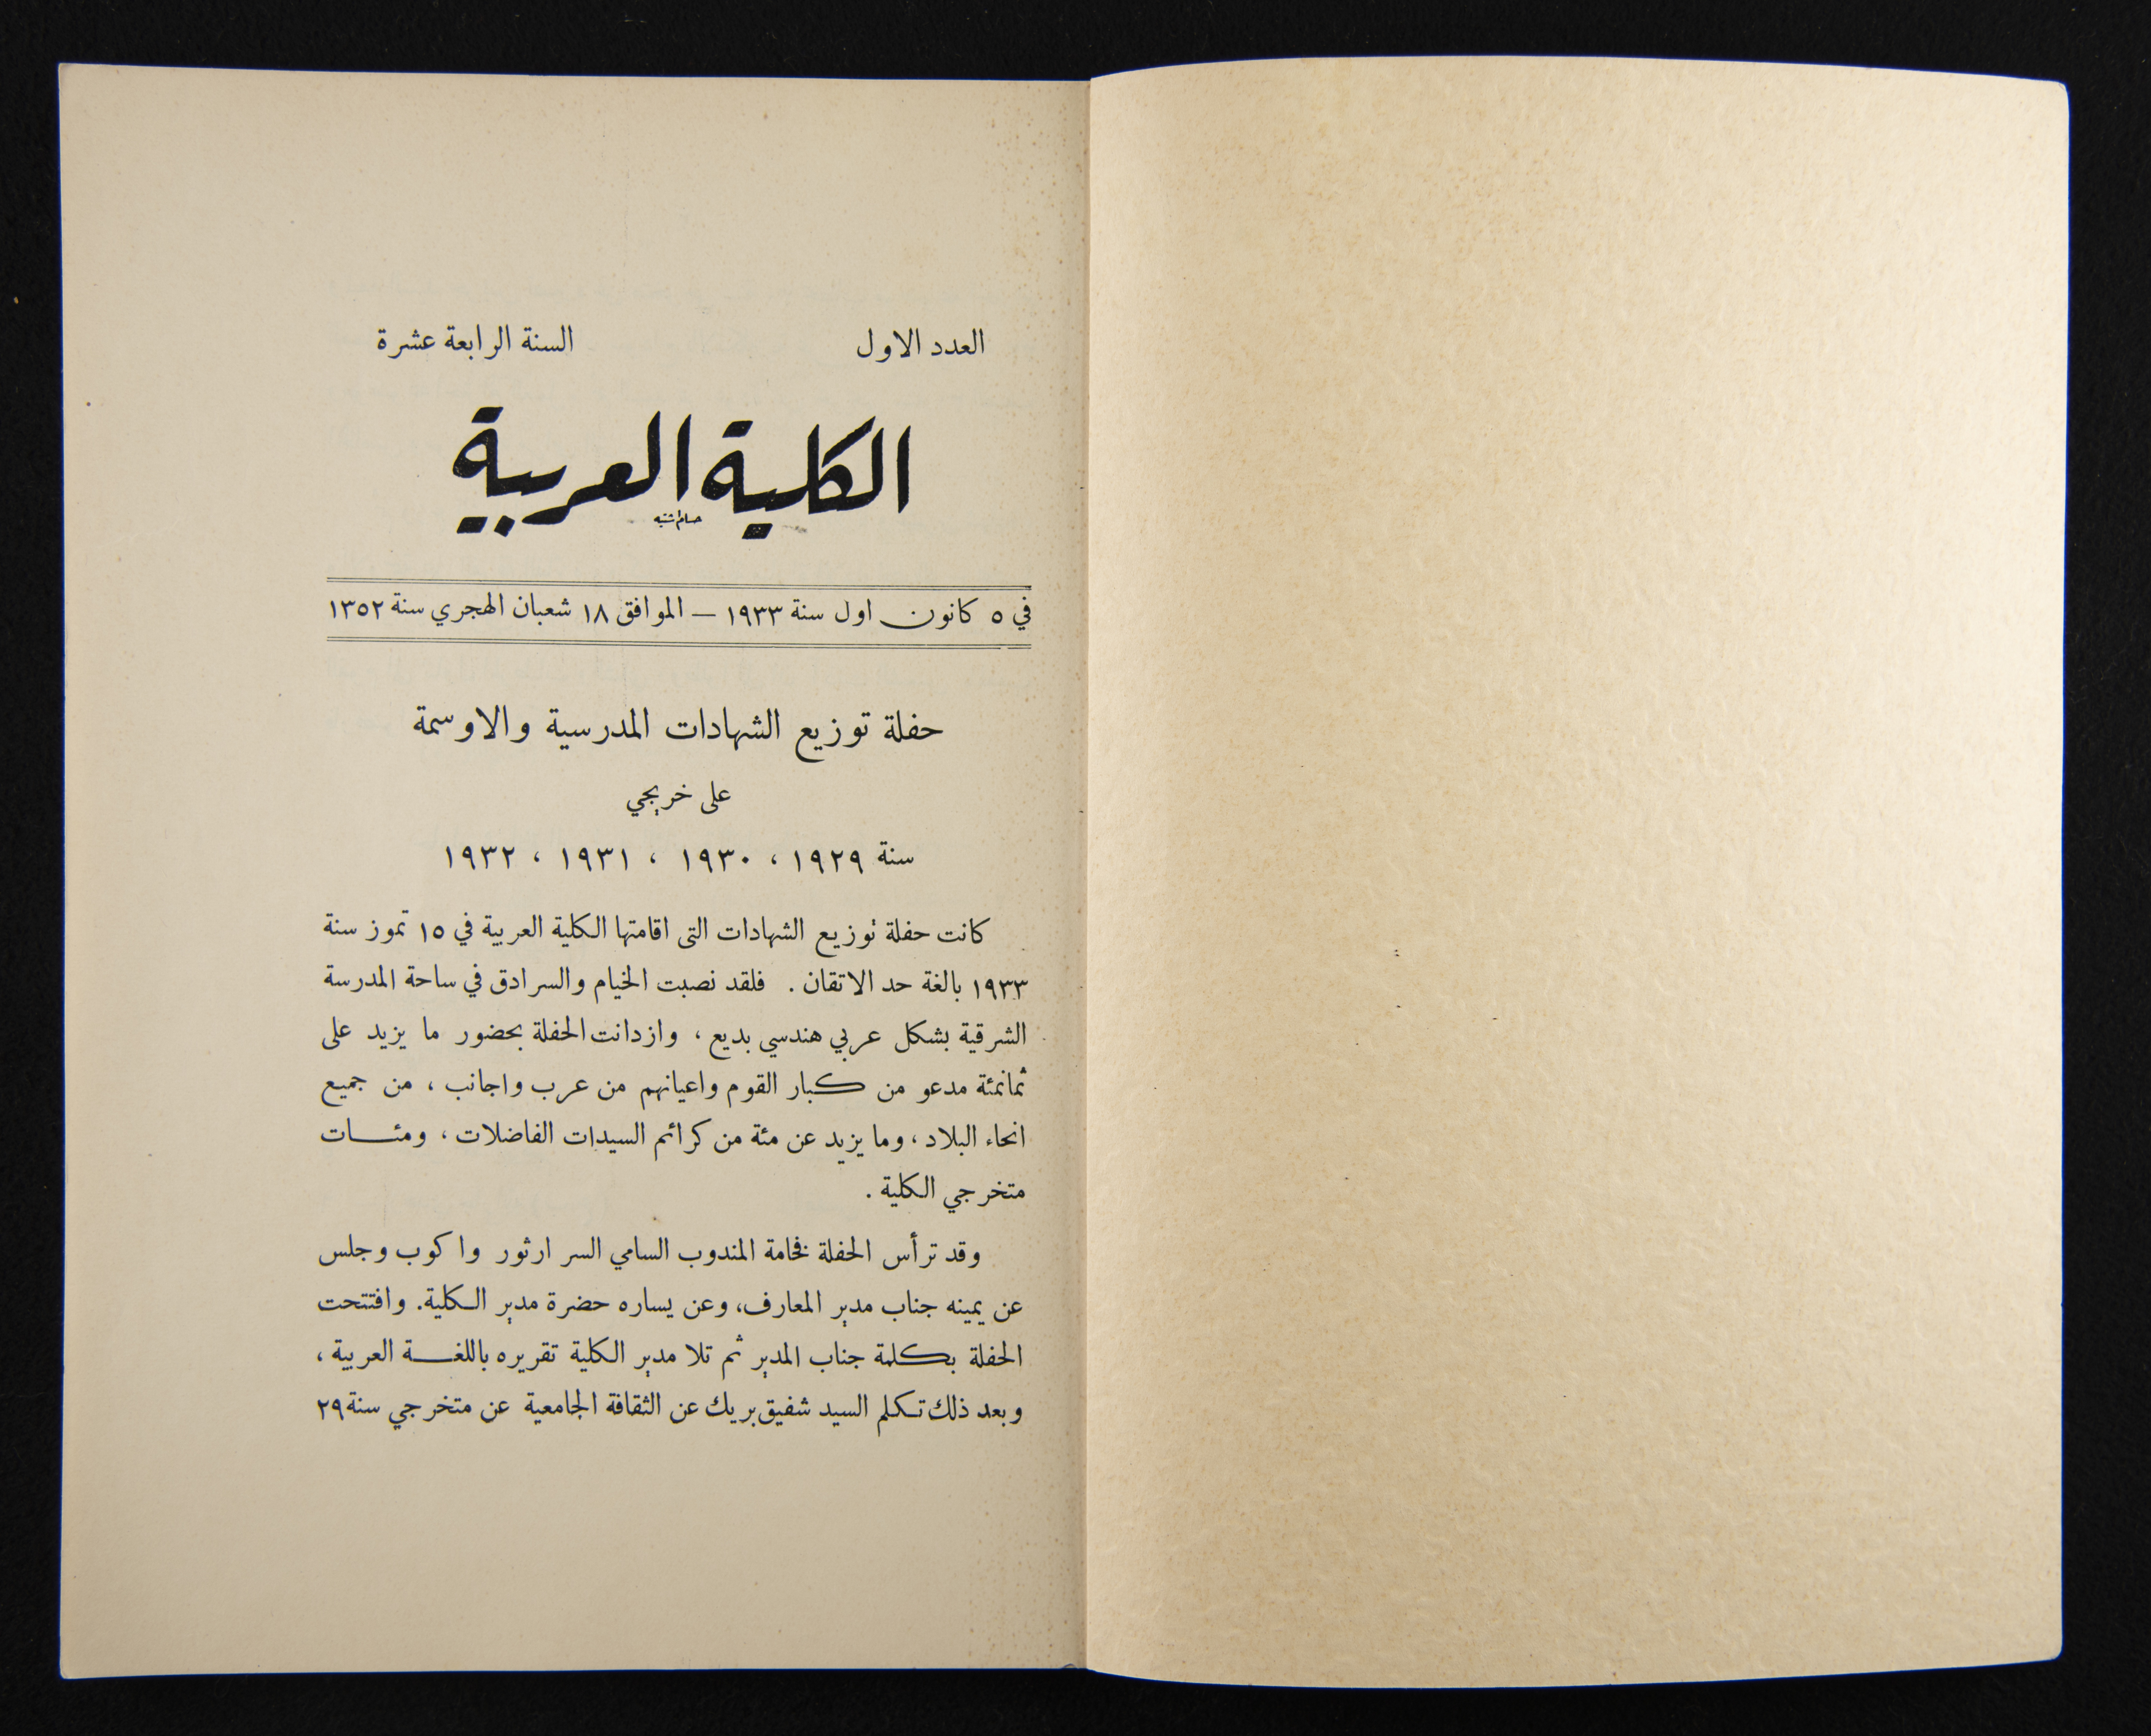 العدد الاول
السنة الرابعة عشرة
الكلية العربية
في ٥ كانون اول سنة ١٩٣٣ – الموافق ١٨ شعبان الهجري سنة ١٣٥٢
حفلة توزيع الشهادات المدرسية والاوسمة
على خريجي
سنة ١٩٢٩ ، ١٩٣٠ ، ١٩٣١ ، ١٩٣٢
كانت حفلة توزيع الشهادات التى اقامتها الكلية العربية في ١٥ تموز سنة
١٩٣٣ بالغة حد الاتقان . فلقد نصبت الخيام والسرادق في ساحة المدرسة
الشرقية بشكل عربي هندسي بديع ، وازدانت الحفلة بحضور ما يزيد على
ثمانمئة مدعو من كبار القوم واعيانهم من عرب واجانب ، من جميع
انحاء البلاد ، وما يزيد عن مئة من كرائم السيدات الفاضلات ، ومئـــات
متخرجي الكلية .
وقد ترأس الحفلة فخامة المندوب السامي السر ارثور واكوب وجلس
عن يمينه جناب مدير المعارف، وعن يساره حضرة مدير الكلية. وافتتحت
الحفلة بكلمة جناب المدير ثم تلا مدير الكلية تقريره باللغـــة العربية ،
وبعد ذلك تكلم السيد شفيق بريك عن الثقافة الجامعية عن متخرجي سنة ٢٩